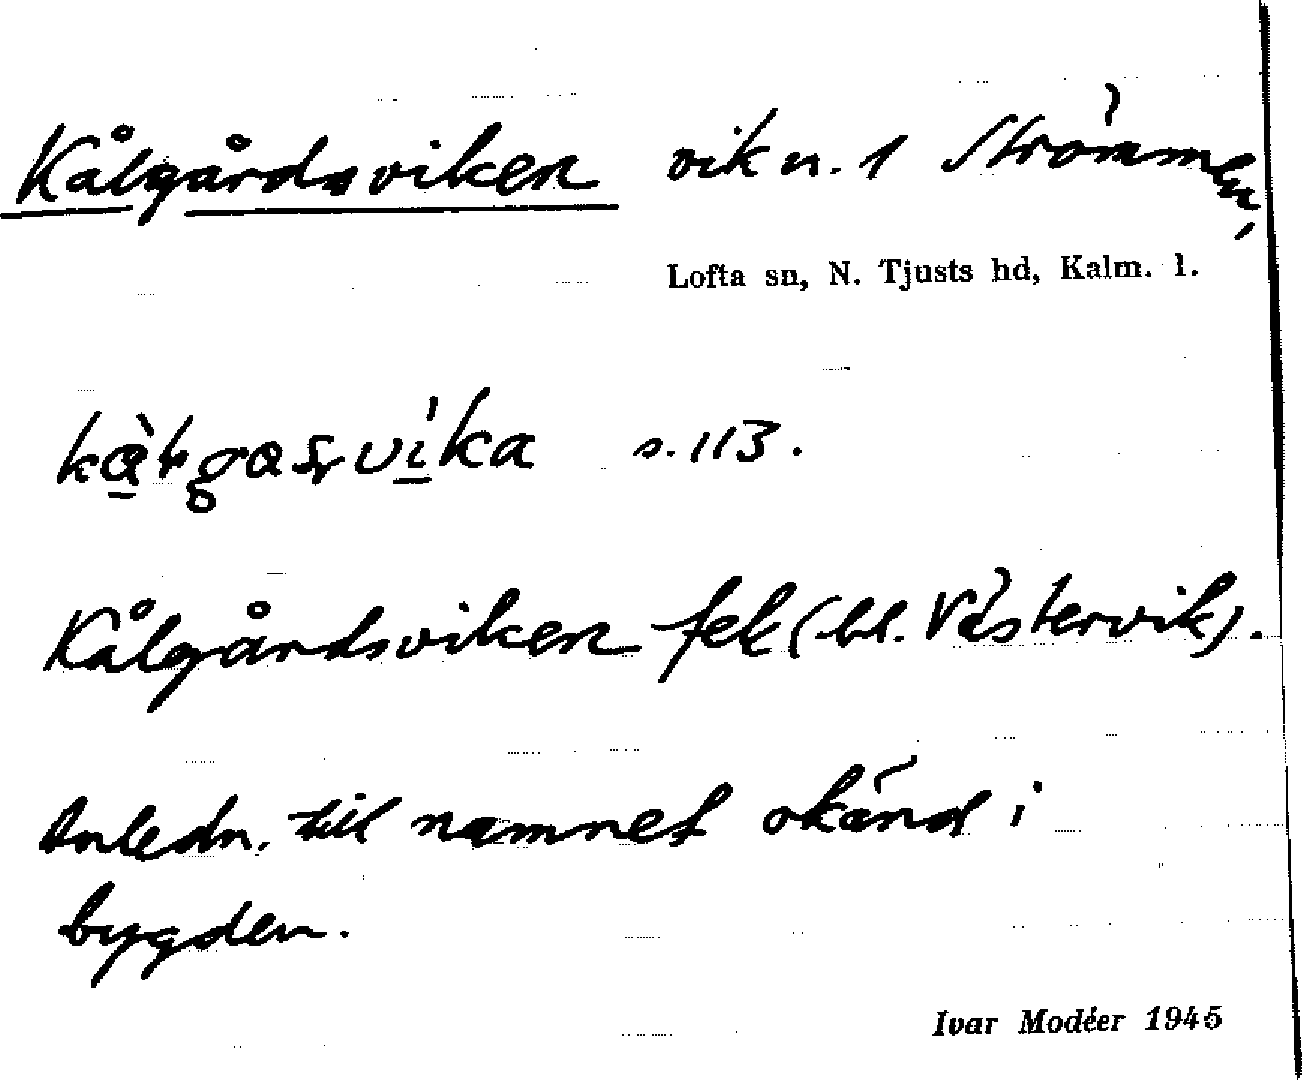 Kålgårdsviken vik n. 1 Strömmen,
Lofta sn, N. Tjusts hd, Kalm. l.
s. 113.
Kålgårdsviken fek (bl. Västervik).
Anledn. till namnet okänd i
bygden.
Ivar Modéer 1945